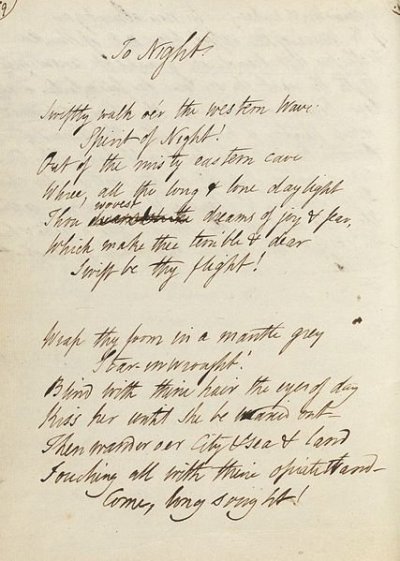 To Night.
Swiftly walk o'er the western wave
Spirit of Night!
Out of the misty eastern cave
Where, all the long & lone daylight
Thou wovest dreams of joy & fear,
Which make thee terrible & dear
Swift be thy flight!
Wrap thy form in a mantle grey
Star-inwrought!
Blind with thine hair the eyes of day
Kiss her until she be wearied out-
Then wander oer City & sea & land
Touching all with thine opiate wand-
Come, long sought!